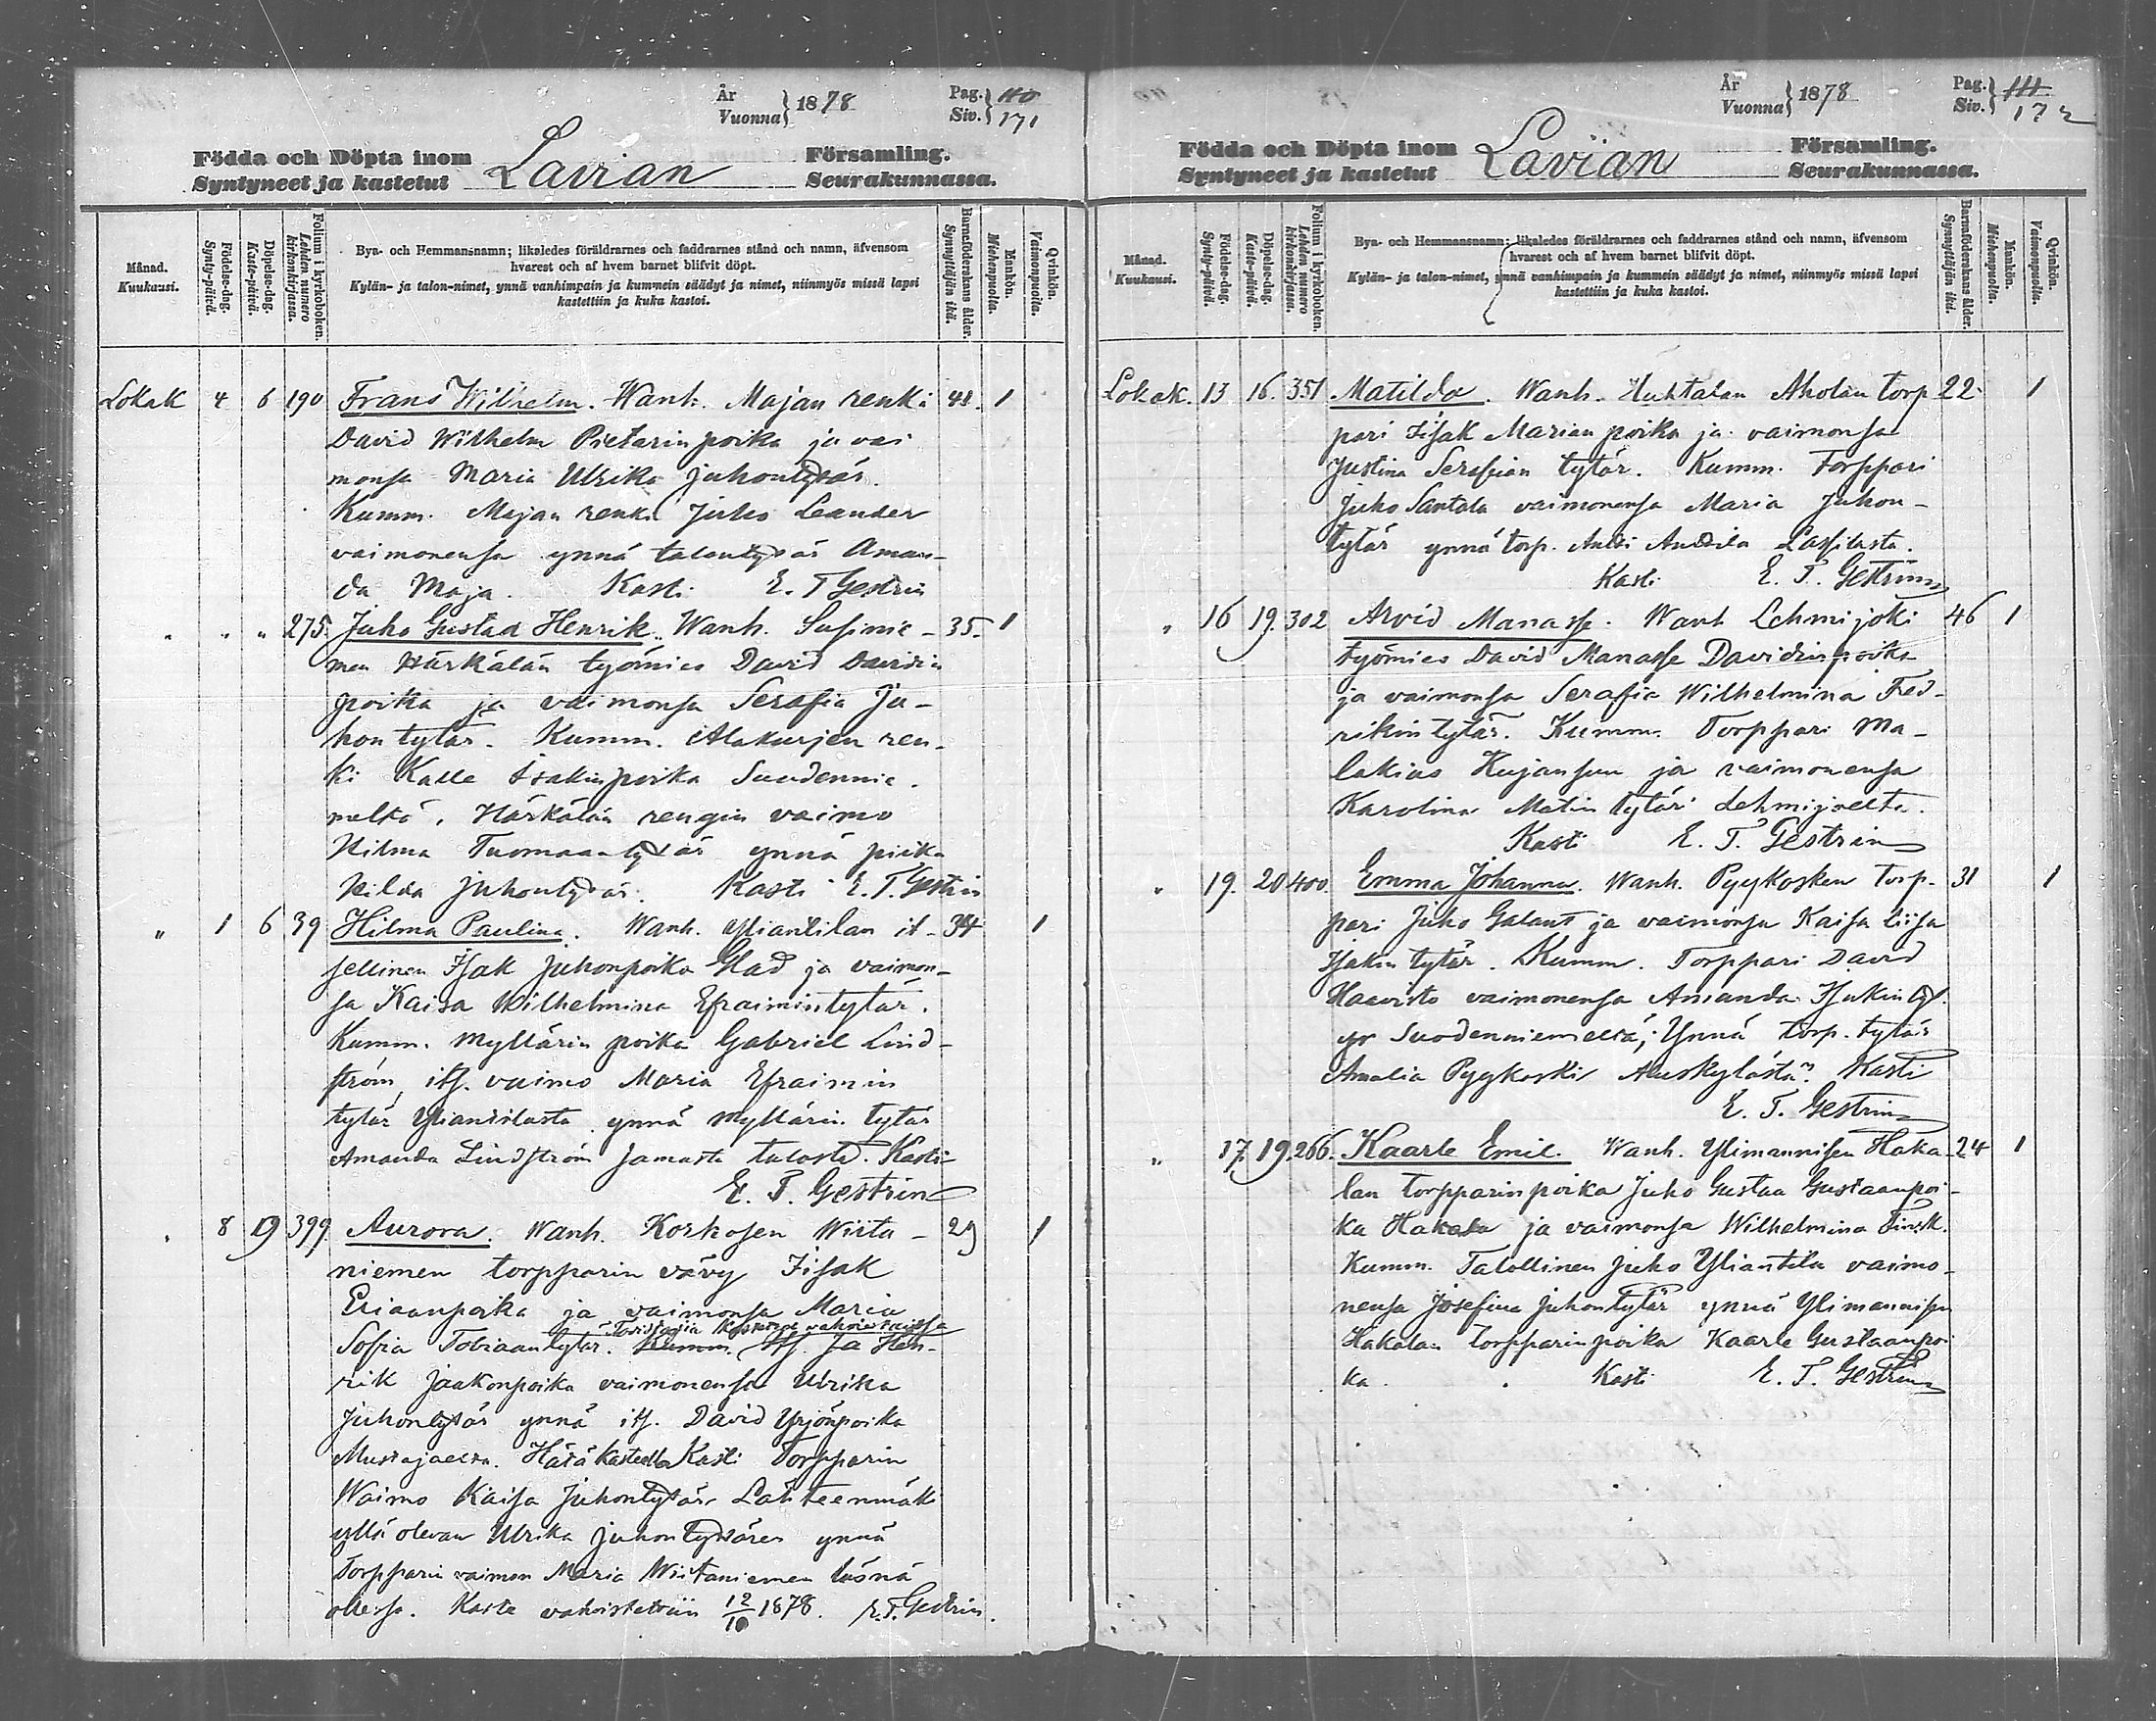 År
Vuonna } 1878
Pag.
Siv. } 110
171
Födda och Döpta inom Lavian Församling.
Syntyneet ja kastetut Seurakunnassa.
Månad.
Kuukausi.
Födelse-dag.
Synty-päivä.
Döpelse-dag.
Kaste-päivä.
Folium i kyrkoboken.
Lehden numero kirkonkirjassa.
Bya- och Hemmansnamn; likaledes föräldrarnes och faddrarnes stånd och namn, äfvensom
hvarest och af hvem barnet blifvit döpt.
Kylän- ja talon-nimet, ynnä vanhimpain ja kummein säädyt ja nimet, niinmyös missä lapsi
kastettiin ja kuka kastoi.
Barnaföderskans ålder.
Synnyttäjän ikä.
Mankön.
Miehenpuolta.
Qvinkön.
Vaimonpuolta.
Lokak 4 6 190 Frans Wilhelm. Wanh. Majan renki 1
David Wilhelm Pietarinpoika ja vai
monsa Maria Ulrika Juhontytär.
Kumm. Majan renki Juho Leander
vaimonensa ynnä talontytär Aman-
da Maja. Kasti E. T Gestrin
" " 275. Juho Gustaa Henrik. Wanh. Susinie- 35. 1
men Härkälän työmies David Davidin
poika ja vaimonsa Serafia Ju-
hontytär. Kumm. Alakurjen ren-
ki Kalle Isakinpoika Suodennie-
meltä, Härkälän rengin vaimo
Hilma Tuomaantytär ynnä piika
Hilda Juhontytär. Kasti E. T. Gestrin
" 1 6 39 Hilma Paulina. Wanh. Yliantilan it- 34 1
sellinen Isak Juhonpoika Glad ja vaimon-
sa Kaisa Wilhelmina Efraimintytär.
Kumm. Myllärin poika Gabriel Lind-
ström, its. vaimo Maria Efraimin
tytär Yliantilasta ynnä myllärin tytär
Amanda Lindström samasta talosta. Kasti
E. T. Gestrin
" 8 19 399 Aurora. Wanh. Korkosen Wiita- 29 1
niemen torpparin vävy Iisak
Eriaanpoika ja vaimonsa Maria
Todistajia kasteen vahvistaissa
Sofia Tobiaantytär. Kumm. Its. Ja Hen-
rik Jaakonpoika vaimonensa Ulrika
Juhontytär ynnä its. David Yrjönpoika
Mustajaelta. Hätäkasteella Kasti Torpparin
Waimo Kaisa Juhontytär Lähteenmäki
ylläolevan Ulrika Juhontyttären ynnä
Torpparin vaimon Maria Wiitaniemen läsnä
ollessa. Kaste vahvistettiin 12/10 1878. E. T. Gestrin.
År
Vuonna } 1878
Pag.
Siv. } 111
172
Födda och Döpta inom Lavian Församling.
Syntyneet ja kastetut Seurakunnassa.
Månad.
Kuukausi.
Födelse-dag.
Synty-päivä.
Döpelse-dag.
Kaste-päivä.
Folium i kyrkoboken.
Lehden numero kirkonkirjassa.
Bya- och Hemmansnamn; likaledes föräldrarnes och faddrarnes stånd och namn, äfvensom
hvarest och af hvem barnet blifvit döpt.
Kylän- ja talon-nimet, ynnä vanhimpain ja kummein säädyt ja nimet, niinmyös missä lapsi
kastettiin ja kuka kastoi.
Barnaföderskans ålder.
Synnyttäjän ikä.
Mankön.
Miehenpuolta.
Qvinkön.
Vaimonpuolta.
Lokak. 13 16. 351 Matilda. Wanh. Huhtalan Aholan torp 22 1
pari Iisak Marian poika ja vaimonsa
Justina Serafian tytär. Kumm. Torppari
Juho Santala vaimonensa Maria Juhon-
tytär ynnä torp. Antti Anttila Lassilasta.
Kasti E. T. Gestrin
" 16 19. 302 Arvid Manasse. Wanh Lehmijoki 46 1
työmies David Manasse Davidinpoika
ja vaimonsa Serafia Wilhelmina Fred-
rikintytär. Kumm. Torppari Ma-
lakias Kujansuu ja vaimonensa
Karolina Matintytär Lehmijoelta.
Kasti E. T. Gestrin
" 19. 20 400. Emma Johanna. Wanh. Pyykosken torp- 31 1
pari Juho Galant ja vaimonsa Kaisa Liisa
Isakintytär. Kumm. Torppari David
Haavisto vaimonensa Amanda Isakintyt.
Suodenniemeltä; Ynnä torp. tytär
Amalia Pyykoski Kasti
E. T. Gestrin
" 17. 19. 266. Kaarle Emil. Wanh. Ylimannisen Haka- 24 1
lan torpparinpoika Juho Gustaa Gustaanpoi-
ka Hakala ja vaimonsa Wilhelmina Finsk.
Kumm. Talollinen Juho Yliantila vaimo-
nensa Josefina Juhontytär ynnä Ylimannisen
Hakalan torpparinpoika Kaarle Gustaanpoi
ka. Kasti E. T. Gestrin